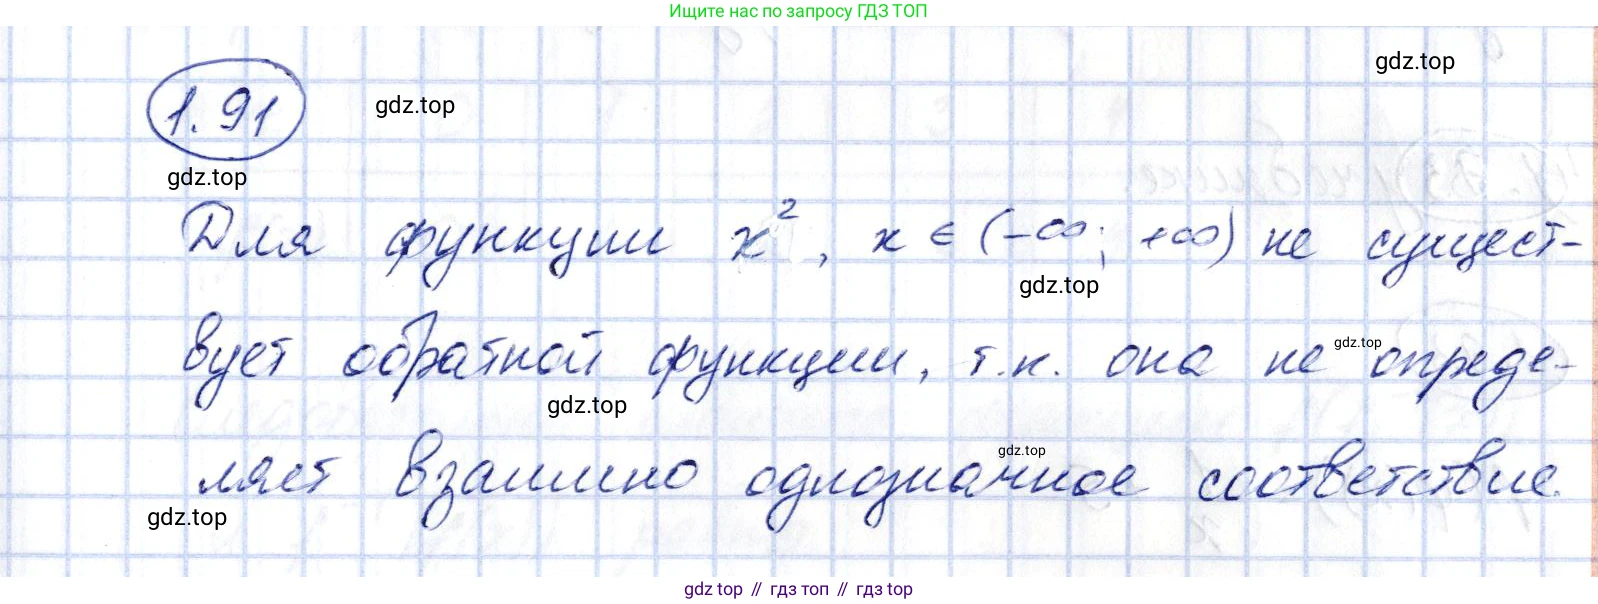 Ищите нас по запросу ГДЗ ТОП
gdz.top
1.91
gdz.top
gdz.top
Для функции x², x ∈ (-∞; +∞) не сущест-
gdz.top
вует обратной функции, т.к. она не опреде-
gdz.top
gdz.top
ляет взаимно однозначное соответствие.
gdz.top
gdz.top
gdz top // гдз топ // гдз top